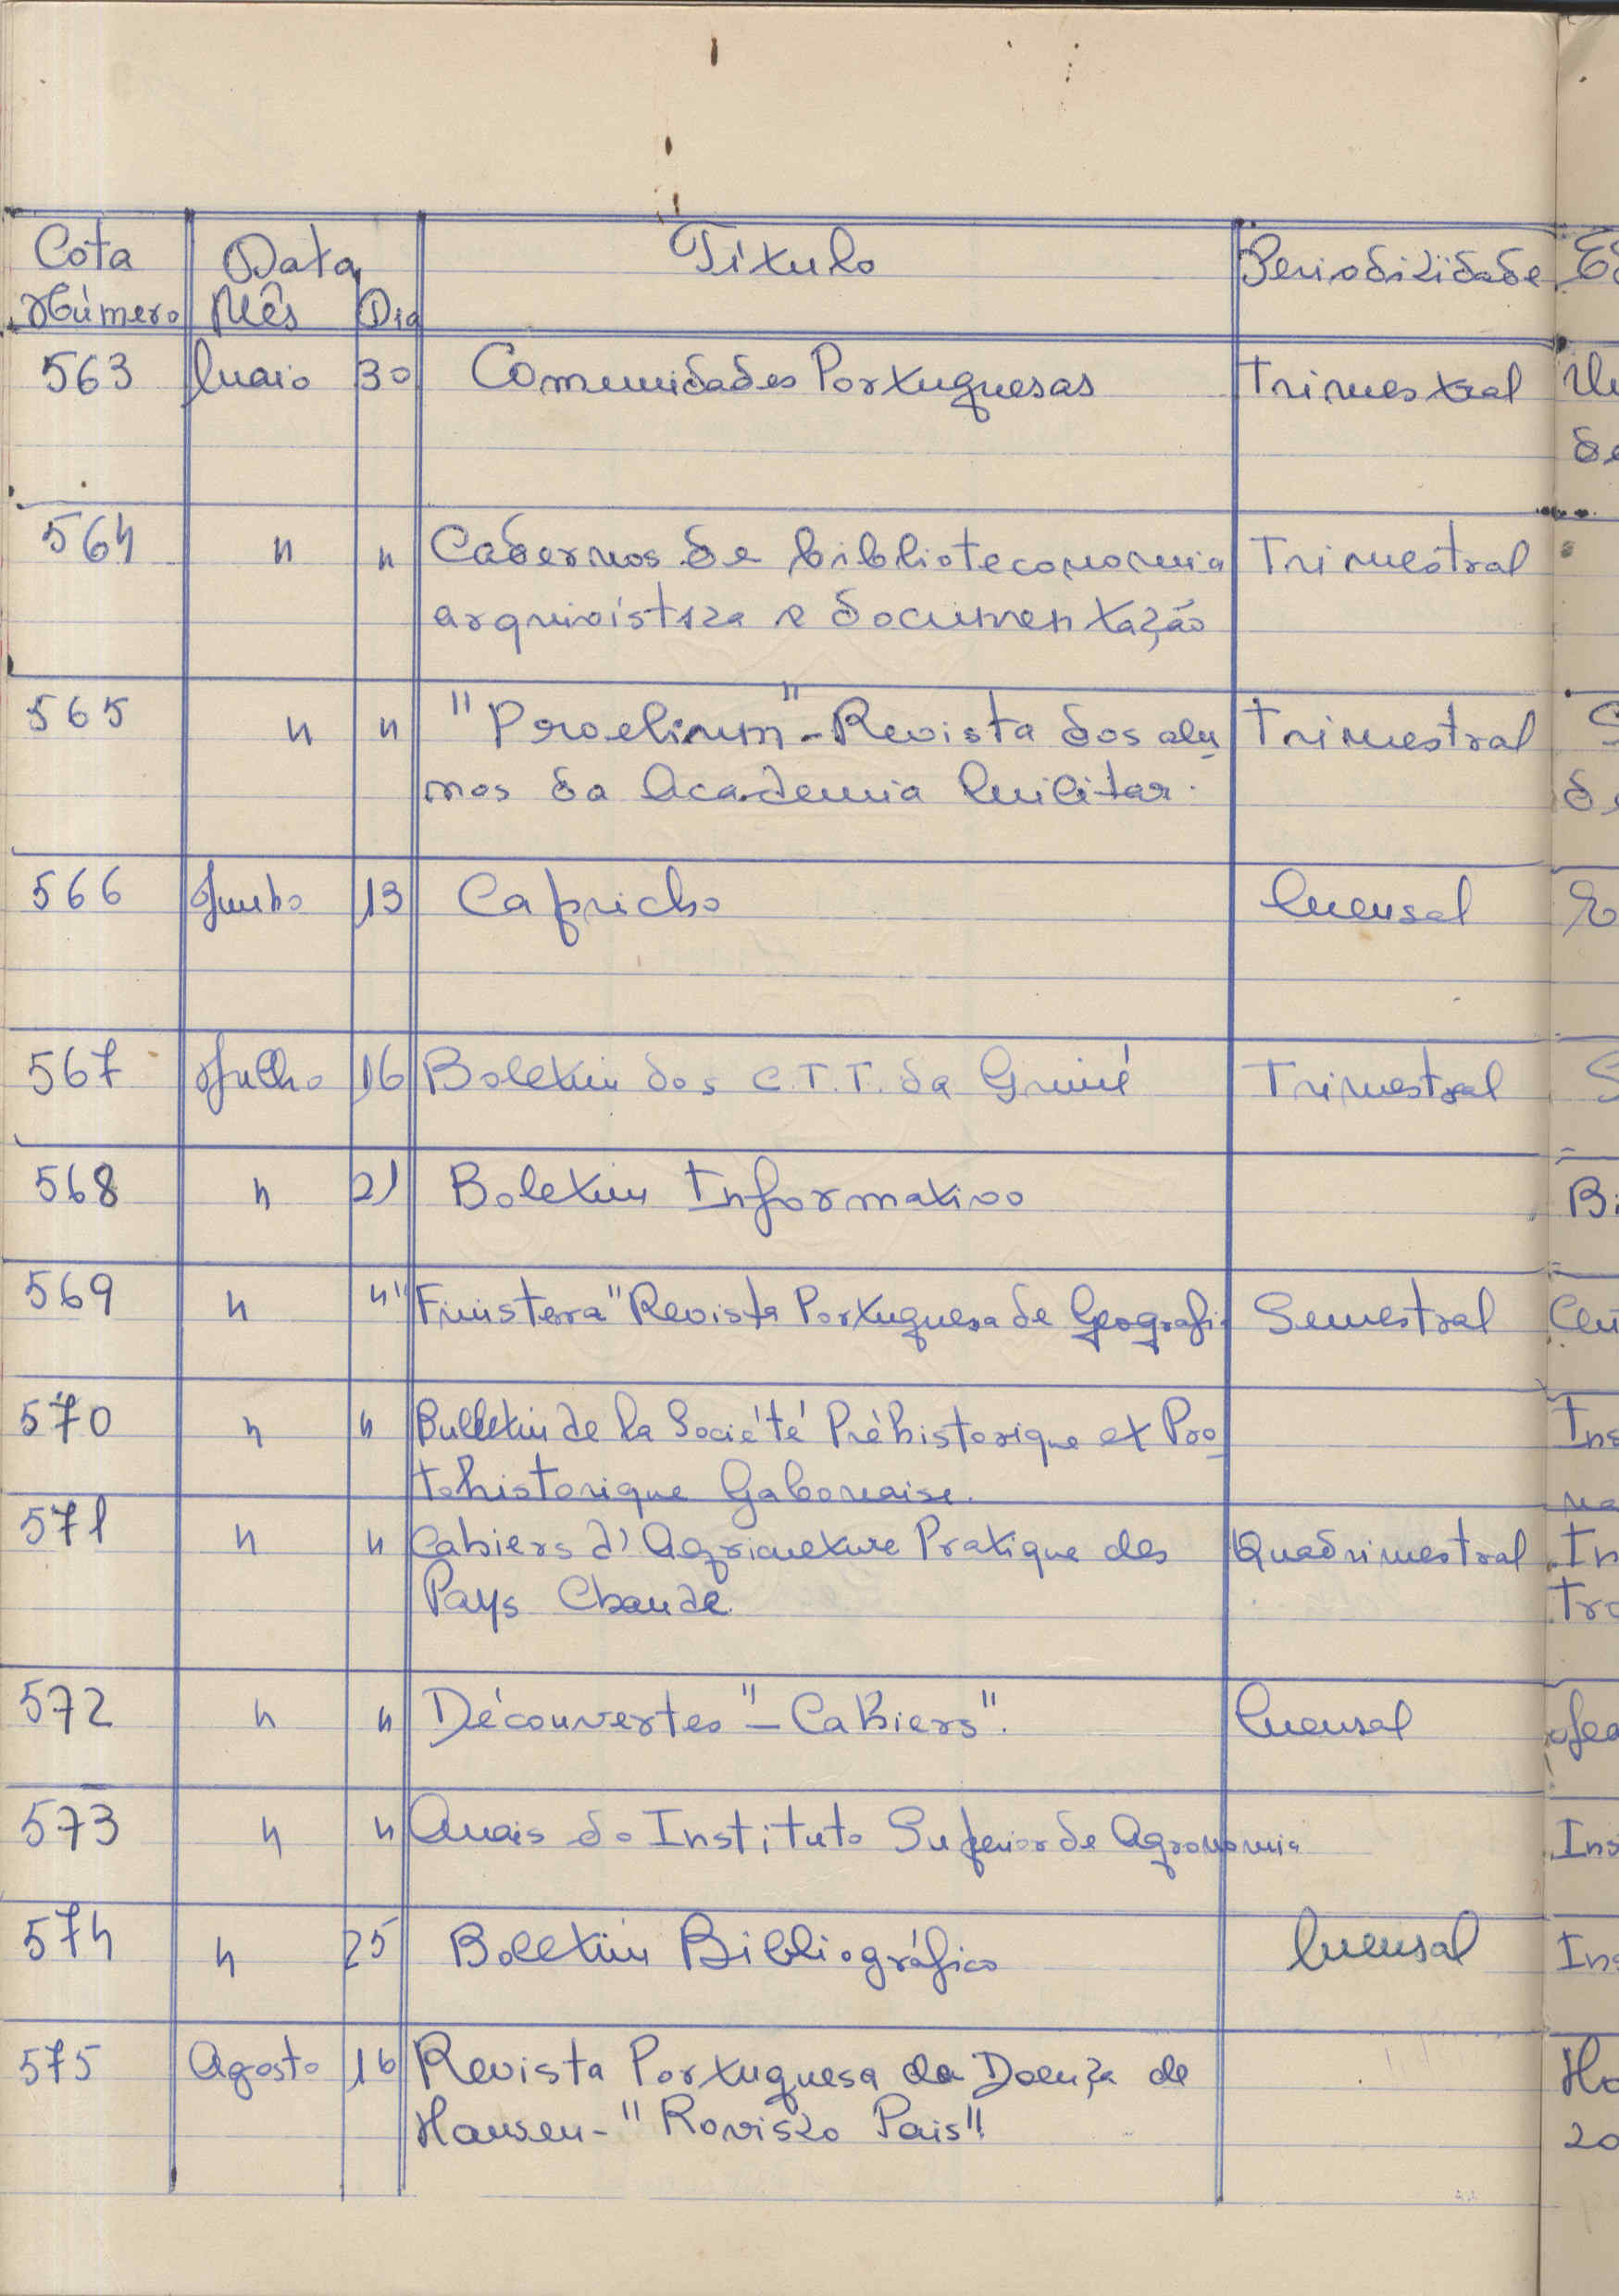 Cota Data Título Periodicidade
Número Mês Dia
563 Maio 30 Comunidades Portuguesas Trimestral
de
564 " " Cadernos de biblioteconomia Trimestral
arquivística e documentação
565 " " "Proelium" - Revista dos alu Trimestral
nos da Academia Militar.
566 Junho 13 Capricho Mensal
567 Julho 16 Boletim dos C.T.T. da Guiné Trimestral
568 " 21 Boletim Informativo Bi
569 " " "Finisterra" Revista Portuguesa de Geografi Semestral Cen
570 " " Bulletin de la Société Préhistorique et Pro Ins
tohistorique Gabonaise. na
571 " " Cahiers d'Agriculture Pratique des Quadrimestral In
Pays Chaude Tro
572 " " Découvertes "- Cahiers". Mensal
573 " " Anais do Instituto Superior de Agronomia Ins
574 " 25 Boletim Bibliográfico Mensal Ins
575 Agosto 16 Revista Portuguesa da Doença de Ho
Hansen - "Rovisco Pais".